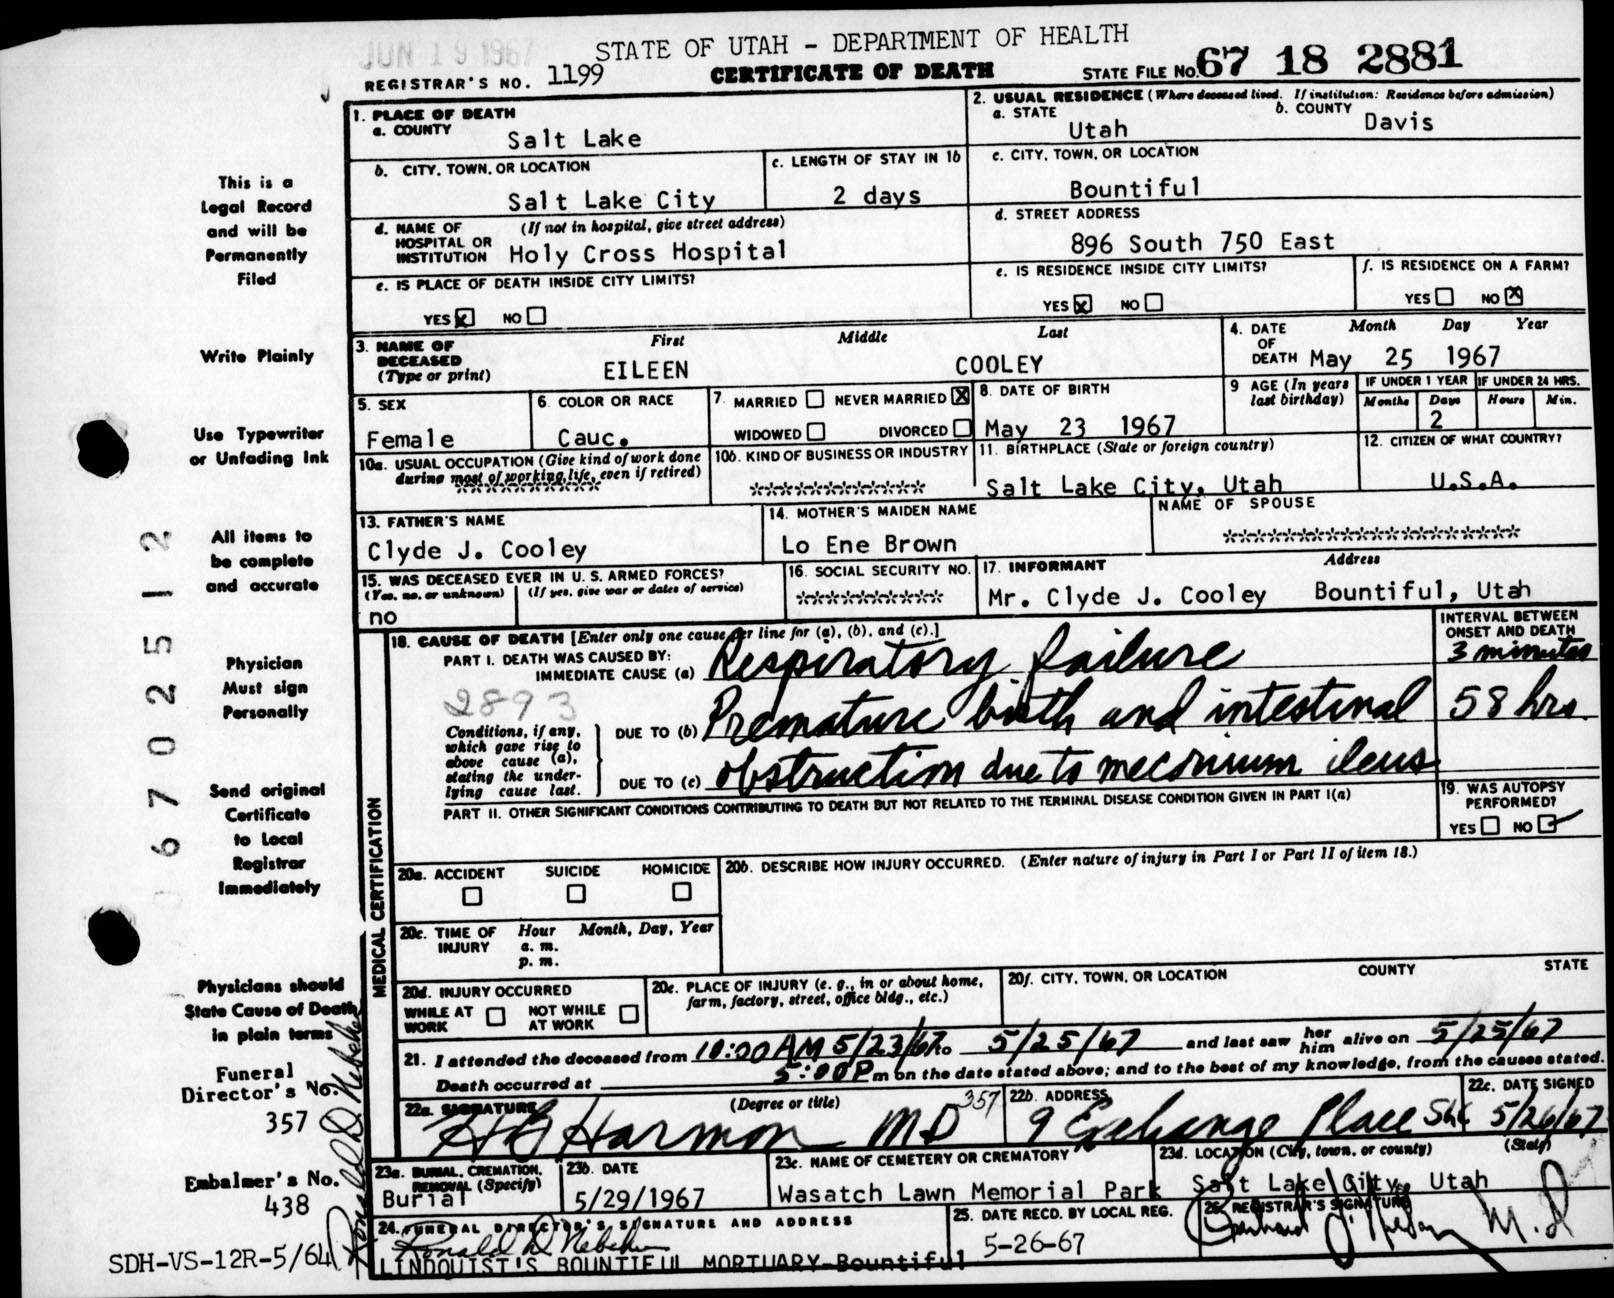 JUN 19 1967
STATE OF UTAH - DEPARTMENT OF HEALTH
REGISTRAR'S NO. 1199 CERTIFICATE OF DEATH STATE FILE NO. 67 18 2881
1. PLACE OF DEATH
a. COUNTY
Salt Lake
2. USUAL RESIDENCE (Where deceased lived. If institution: Residence before admission)
a. STATE b. COUNTY
Utah Davis
b. CITY, TOWN, OR LOCATION
Salt Lake City
c. LENGTH OF STAY IN 1b
2 days
c. CITY, TOWN, OR LOCATION
Bountiful
d. NAME OF (If not in hospital, give street address)
HOSPITAL OR
INSTITUTION Holy Cross Hospital
d. STREET ADDRESS
896 South 750 East
e. IS PLACE OF DEATH INSIDE CITY LIMITS?
YES X NO
e. IS RESIDENCE INSIDE CITY LIMITS?
YES X NO
f. IS RESIDENCE ON A FARM?
YES NO X
3. NAME OF First Middle Last
DECEASED
(Type or print) EILEEN COOLEY
4. DATE Month Day Year
OF
DEATH May 25 1967
5. SEX
Female
6. COLOR OR RACE
Cauc.
7. MARRIED NEVER MARRIED X
WIDOWED DIVORCED
8. DATE OF BIRTH
May 23 1967
9 AGE (In years
last birthday)
IF UNDER 1 YEAR IF UNDER 24 HRS.
Months Days Hours Min.
2
10a. USUAL OCCUPATION (Give kind of work done
during most of working life, even if retired)
************
10b. KIND OF BUSINESS OR INDUSTRY
**************
11. BIRTHPLACE (State or foreign country)
Salt Lake City, Utah
12. CITIZEN OF WHAT COUNTRY?
U.S.A.
13. FATHER'S NAME
Clyde J. Cooley
14. MOTHER'S MAIDEN NAME
Lo Ene Brown
NAME OF SPOUSE
***********************
15. WAS DECEASED EVER IN U. S. ARMED FORCES?
(Yes, no, or unknown) (If yes, give war or dates of service)
no
16. SOCIAL SECURITY NO.
***********
17. INFORMANT Address
Mr. Clyde J. Cooley Bountiful, Utah
MEDICAL CERTIFICATION
18. CAUSE OF DEATH [Enter only one cause per line for (a), (b), and (c).]
INTERVAL BETWEEN
ONSET AND DEATH
PART I. DEATH WAS CAUSED BY:
IMMEDIATE CAUSE (a) Respiratory failure 3 minutes
2893
Conditions, if any,
which gave rise to
above cause (a),
stating the under-
lying cause last.
DUE TO (b) Premature birth and intestinal 58 hrs.
DUE TO (c) obstruction due to meconium ileus
PART II. OTHER SIGNIFICANT CONDITIONS CONTRIBUTING TO DEATH BUT NOT RELATED TO THE TERMINAL DISEASE CONDITION GIVEN IN PART I(a)
19. WAS AUTOPSY
PERFORMED?
YES NO ✓
20a. ACCIDENT SUICIDE HOMICIDE
20b. DESCRIBE HOW INJURY OCCURRED. (Enter nature of injury in Part I or Part II of item 18.)
20c. TIME OF Hour Month, Day, Year
INJURY a. m.
p. m.
20d. INJURY OCCURRED
WHILE AT WORK NOT WHILE AT WORK
20e. PLACE OF INJURY (e. g., in or about home,
farm, factory, street, office bldg., etc.)
20f. CITY, TOWN, OR LOCATION COUNTY STATE
21. I attended the deceased from 10:00 AM 5/23/67 to 5/25/67 and last saw her him alive on 5/25/67
Death occurred at 5:00 P m on the date stated above; and to the best of my knowledge, from the causes stated.
22a. SIGNATURE (Degree or title)
H G Harmon MD 357
22b. ADDRESS
9 Exchange Place SLC
22c. DATE SIGNED
5/26/67
23a. BURIAL, CREMATION,
REMOVAL (Specify)
Burial
23b. DATE
5/29/1967
23c. NAME OF CEMETERY OR CREMATORY
Wasatch Lawn Memorial Park
23d. LOCATION (City, town, or county) (State)
Salt Lake City, Utah
24. FUNERAL DIRECTOR'S SIGNATURE AND ADDRESS
Ronald D. Nebeker
LINDQUIST'S BOUNTIFUL MORTUARY-Bountiful
25. DATE RECD. BY LOCAL REG.
5-26-67
26. REGISTRAR'S SIGNATURE
M.D
This is a
Legal Record
and will be
Permanently
Filed
Write Plainly
Use Typewriter
or Unfading Ink
All items to
be complete
and accurate
Physician
Must sign
Personally
Send original
Certificate
to Local
Registrar
Immediately
Physicians should
State Cause of Death
in plain terms
Funeral
Director's No.
357
Embalmer's No.
438
Ronald D. Nebeker
SDH-VS-12R-5/64
0 6 7 0 2 5 1 2